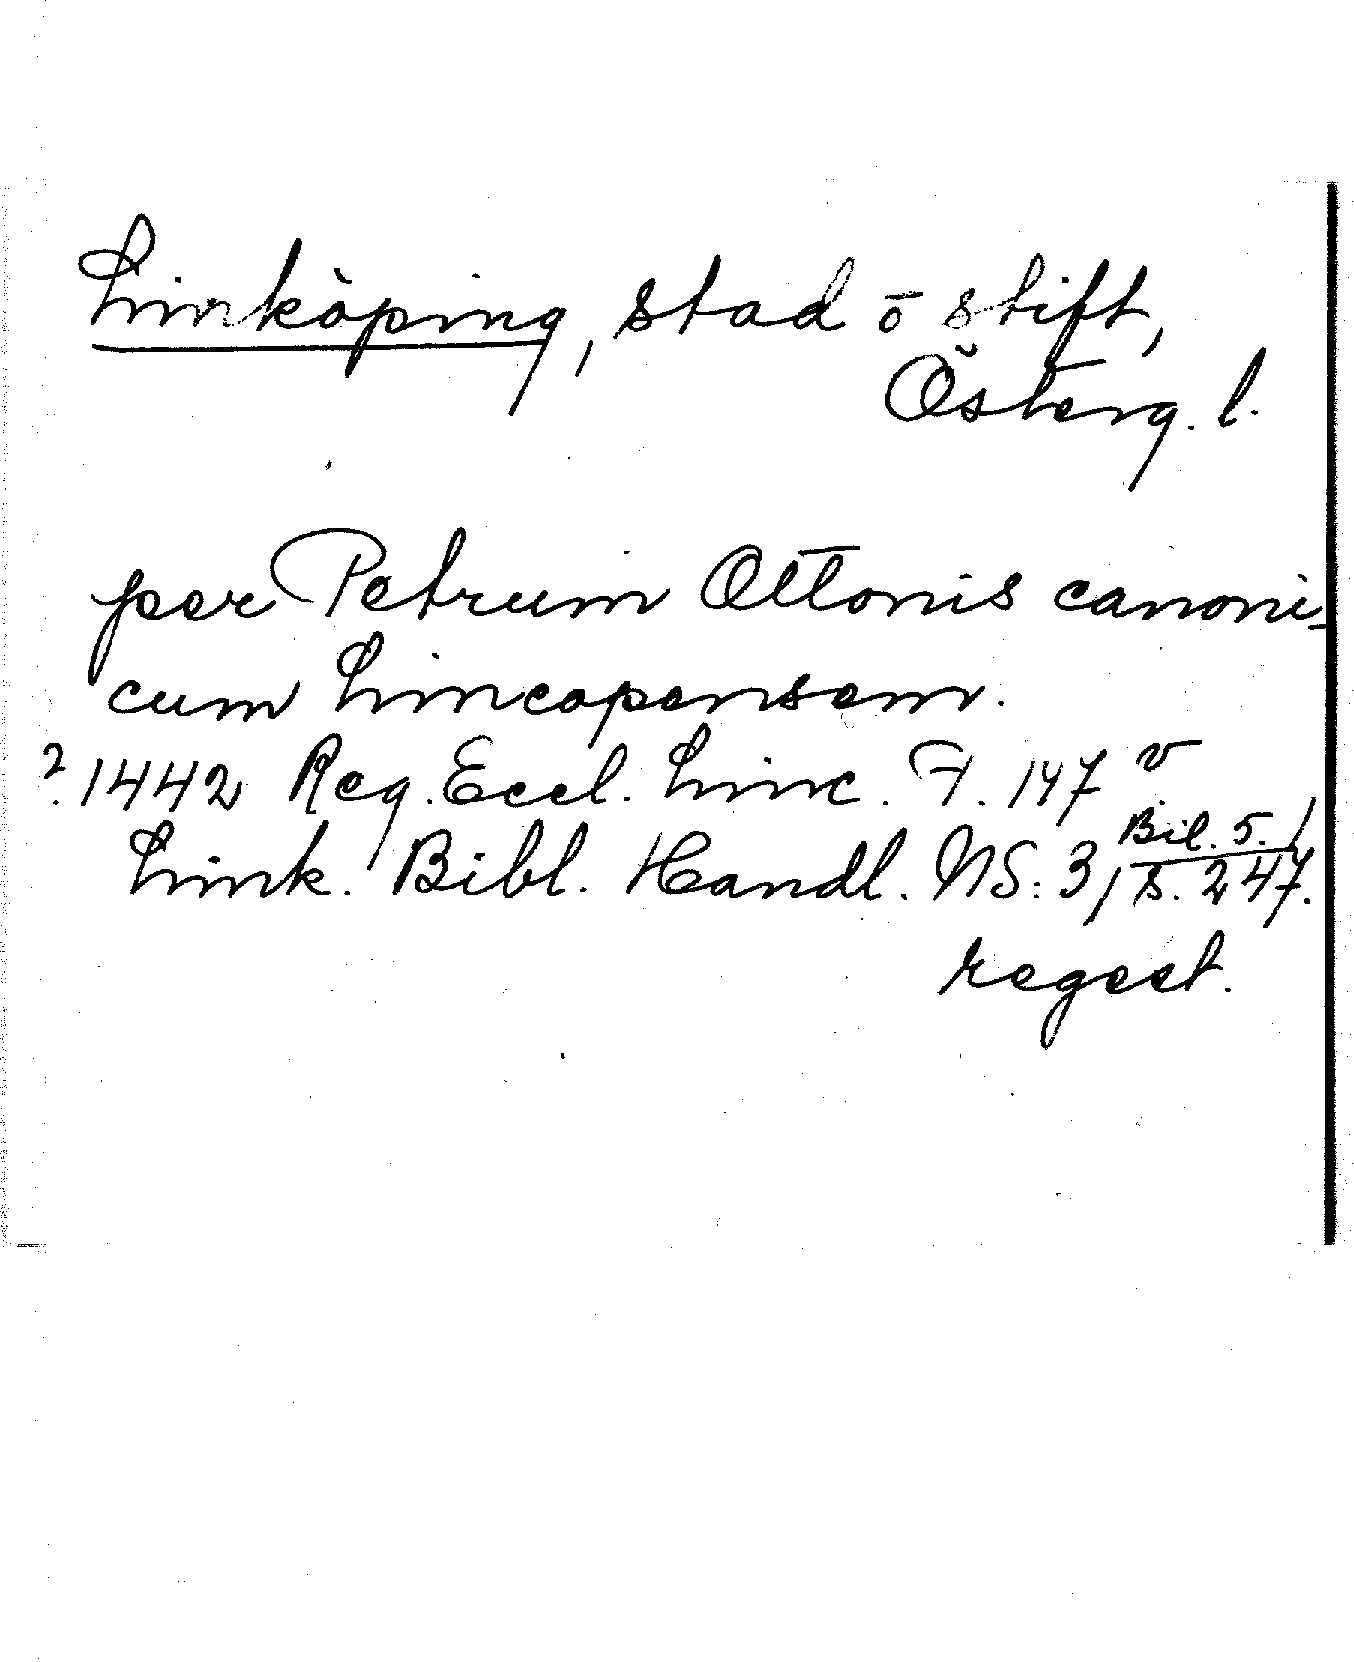 Linköping, stad ō stift,
Österg. l.
per Petrum Ottonis canoni-
cum Lincopensem.
?1442 Reg. Eccl. Linc. F. 147 v
Link. Bibl. Handl. NS: 3, Bil. 5. / s. 247.
regest.